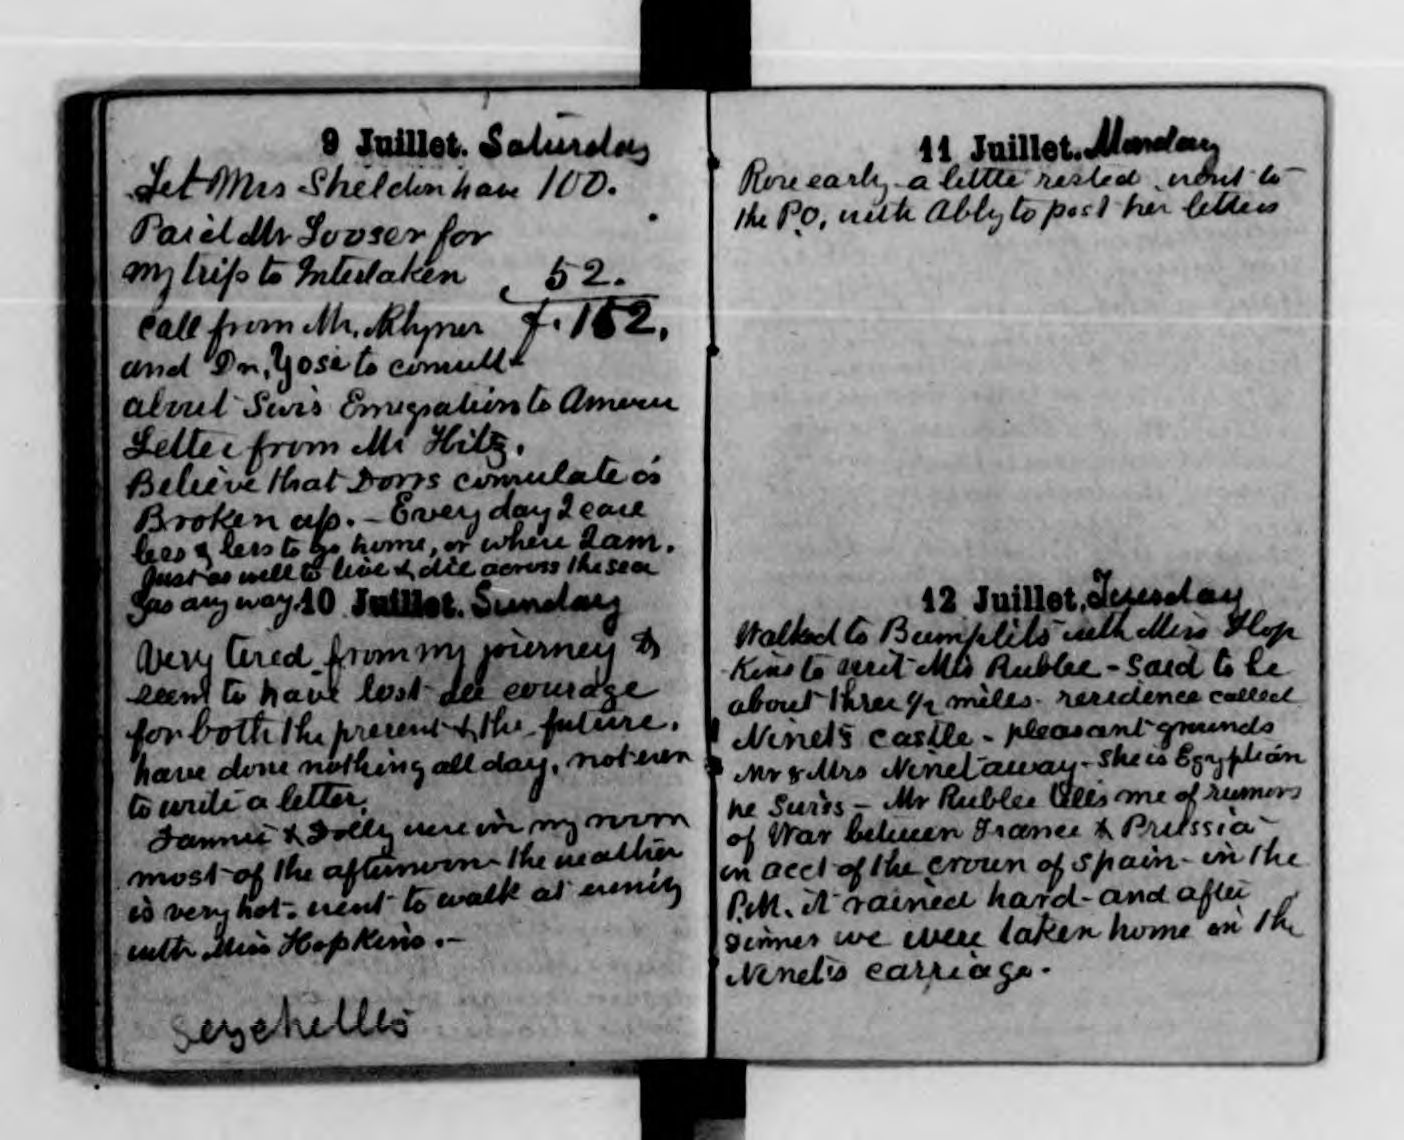 9 Juillet. Saturday
Let Mrs Sheldon have 100.
Paid Mr Looser for
my trip to Interlaken 52.
call from Mr. Rhyner f. 152.
and Dr. Yose to consult
about Swis Emigration to America
Letter from Mr Hitz.
Believe that Dorrs consulate is
Broken up. - Every day I care
less & less to go home, or where I am.
Just as well to live & die across the sea
as any way.
10 Juillet. Sunday
Very tired from my journey &
seem to have lost all courage
for both the present & the future.
have done nothing all day, not even
to write a letter.
Fannie & Dolly were in my room
most of the afternoon - the weather
is very hot. went to walk at evening
with Miss Hopkins. -
Seychelles
11 Juillet. Monday
Rose early - a little rested. went to
the P.O. with Abby to post her letters
12 Juillet. Tuesday
Walked to Bumplits with Miss Hop
kins to visit Mrs Rublee - said to be
about three ½ miles. residence called
Ninet's castle - pleasant grounds
Mr & Mrs Ninet away - She is Egyptian
he Swiss - Mr Rublee tells me of rumors
of War between France & Prussia -
on acct of the crown of Spain - in the
P.M. it rained hard - and after
dinner we were taken home in the
Ninet's carriage.